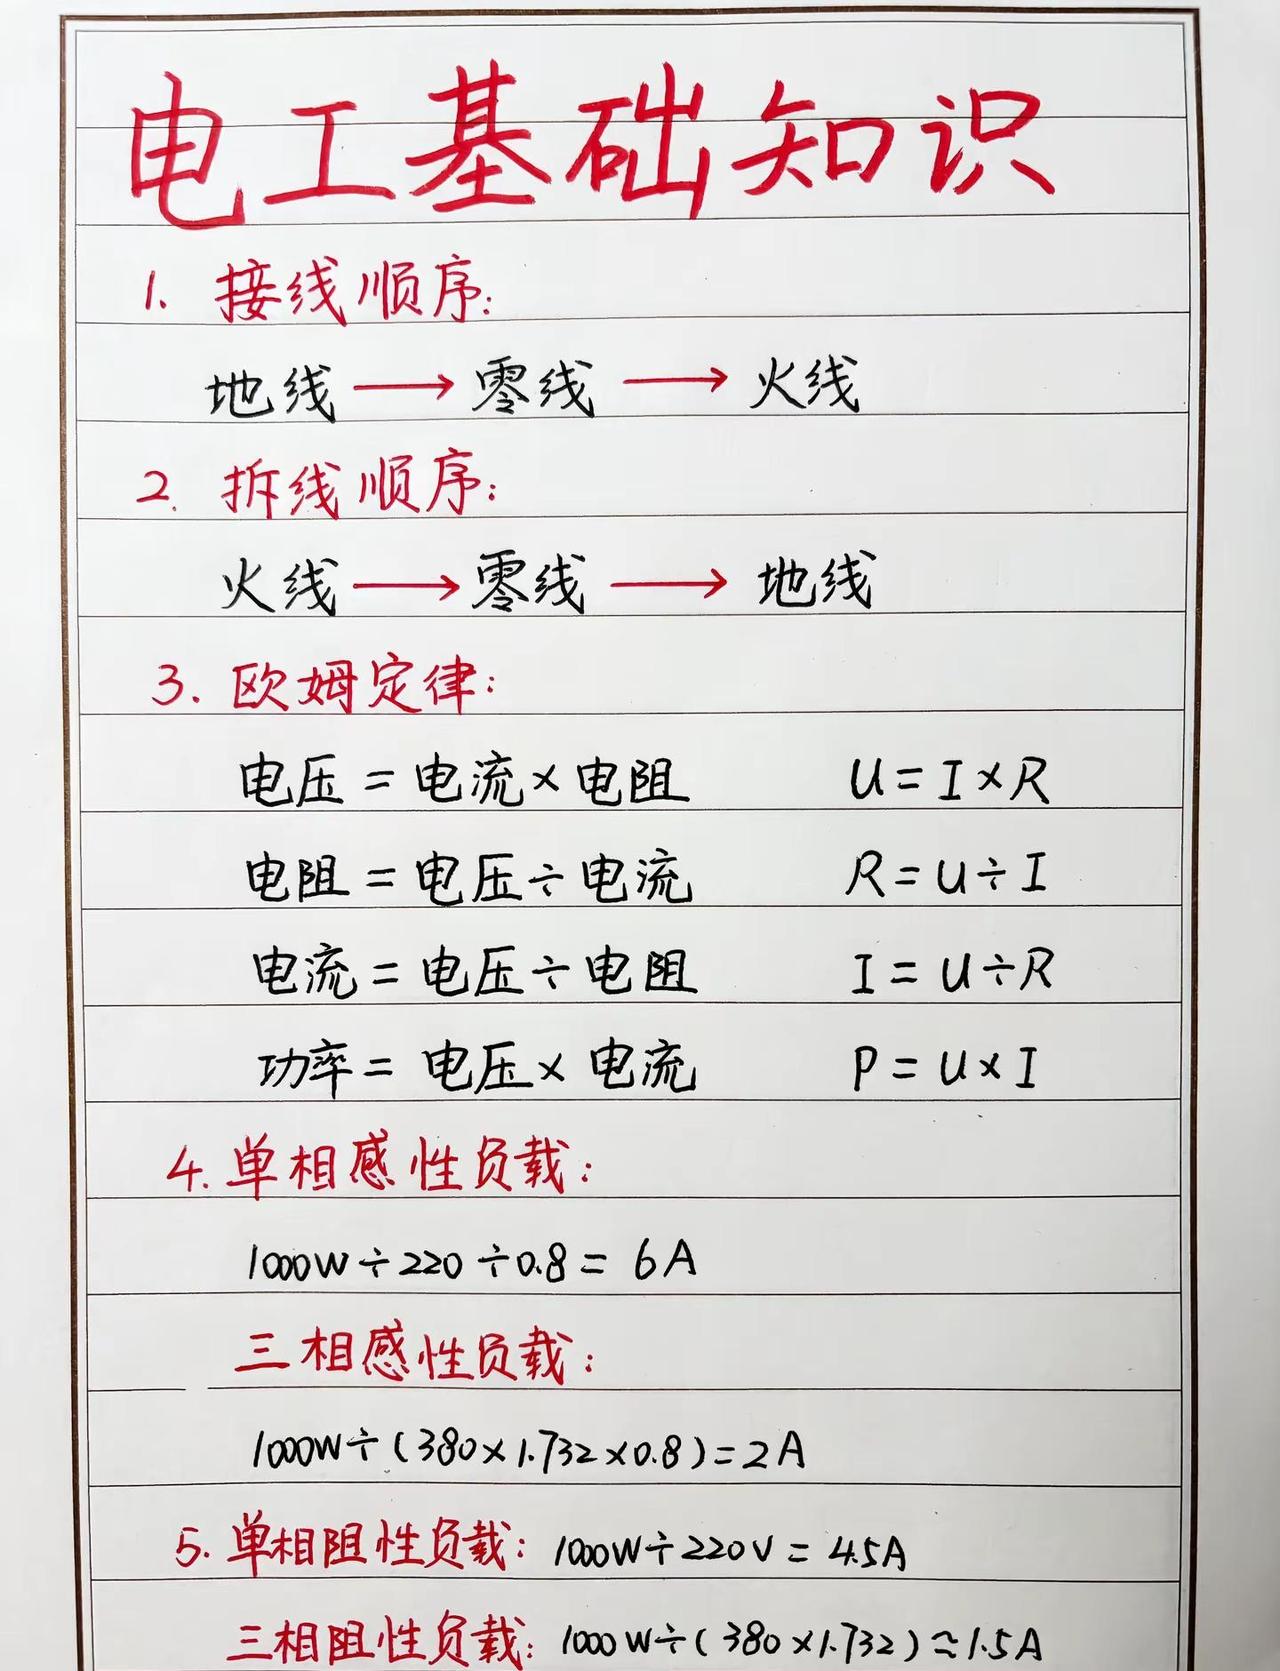 电工基础知识
1. 接线顺序:
地线 → 零线 → 火线
2. 拆线顺序:
火线 → 零线 → 地线
3. 欧姆定律:
电压 = 电流 × 电阻 U = I × R
电阻 = 电压 ÷ 电流 R = U ÷ I
电流 = 电压 ÷ 电阻 I = U ÷ R
功率 = 电压 × 电流 P = U × I
4. 单相感性负载:
1000W ÷ 220 ÷ 0.8 = 6A
三相感性负载:
1000W ÷ (380 × 1.732 × 0.8) = 2A
5. 单相阻性负载: 1000W ÷ 220V = 4.5A
三相阻性负载: 1000W ÷ (380 × 1.732) ≈ 1.5A